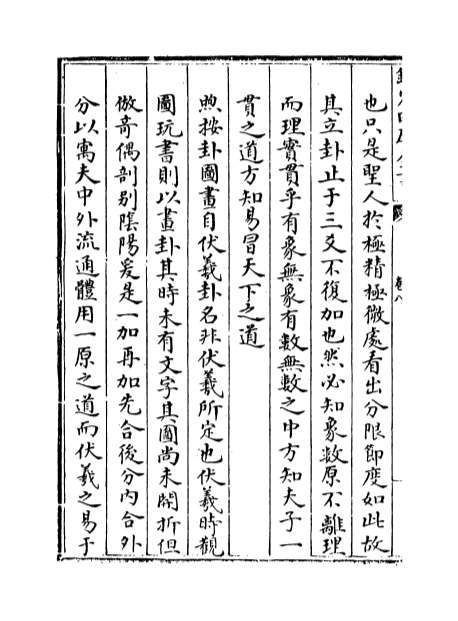 也只是聖人於極精極微處看出分限節度如此故
其立卦止于三爻不復加也然必知象數原不離理
而理實貫乎有象無象有數無數之中方知夫子一
貫之道方知易冒天下之道
煦按卦圖畫自伏羲卦名非伏羲所定也伏羲時觀
圖玩書則以畫卦其時未有文字其圖尚未開折但
倣奇偶剖别隂陽爰是一加再加先合後分内合外
分以寓夫中外流通體用一原之道而伏羲之易于
卷八